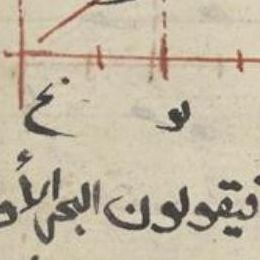 لو نح
فيقولون البحر الأ